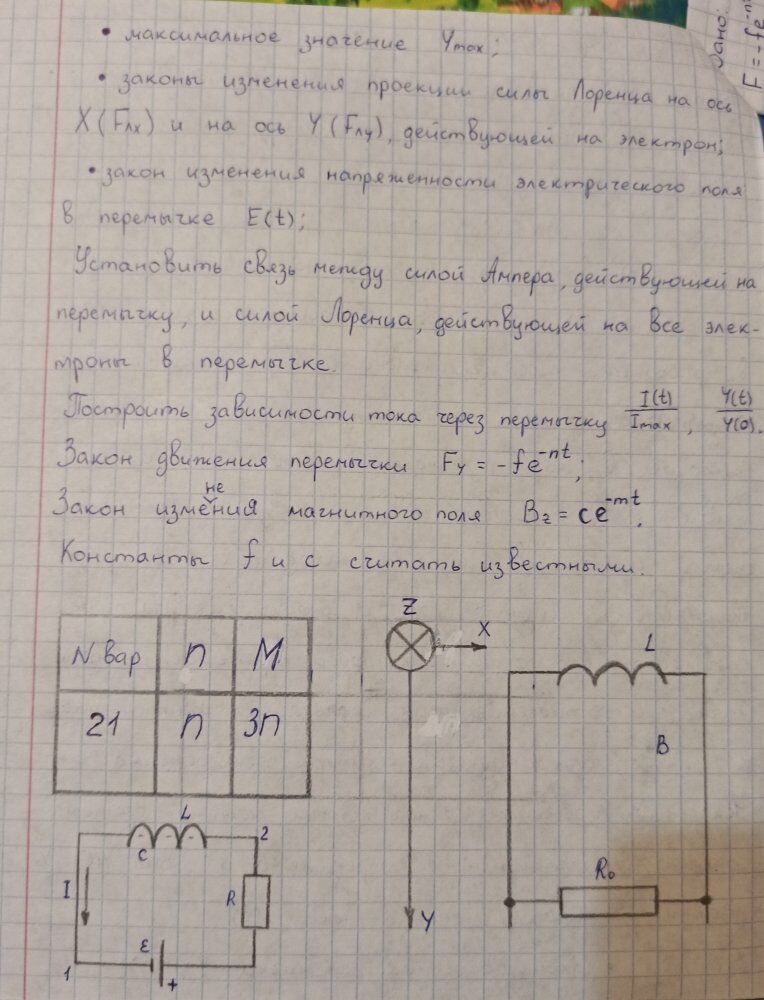 • максимальное значение Ymax;
• законы изменения проекции силы Лоренца на ось
X (Fлx) и на ось Y (Fлy), действующей на электрон;
• закон изменения напряженности электрического поля
в перемычке E(t);
Установить связь между силой Ампера, действующей на
перемычку, и силой Лоренца, действующей на все элек-
троны в перемычке.
Построить зависимости тока через перемычку I(t)/Imax, Y(t)/Y(0).
Закон движения перемычки Fy = -fe^-nt;
Закон изменения магнитного поля Bz = ce^-mt.
Константы f и с считать известными.
N вар n M
21 n 3n
Z
X
Y
L
B
R₀
L
C
2
I
R
ε
1
+
Дано:
F = -fe^-n